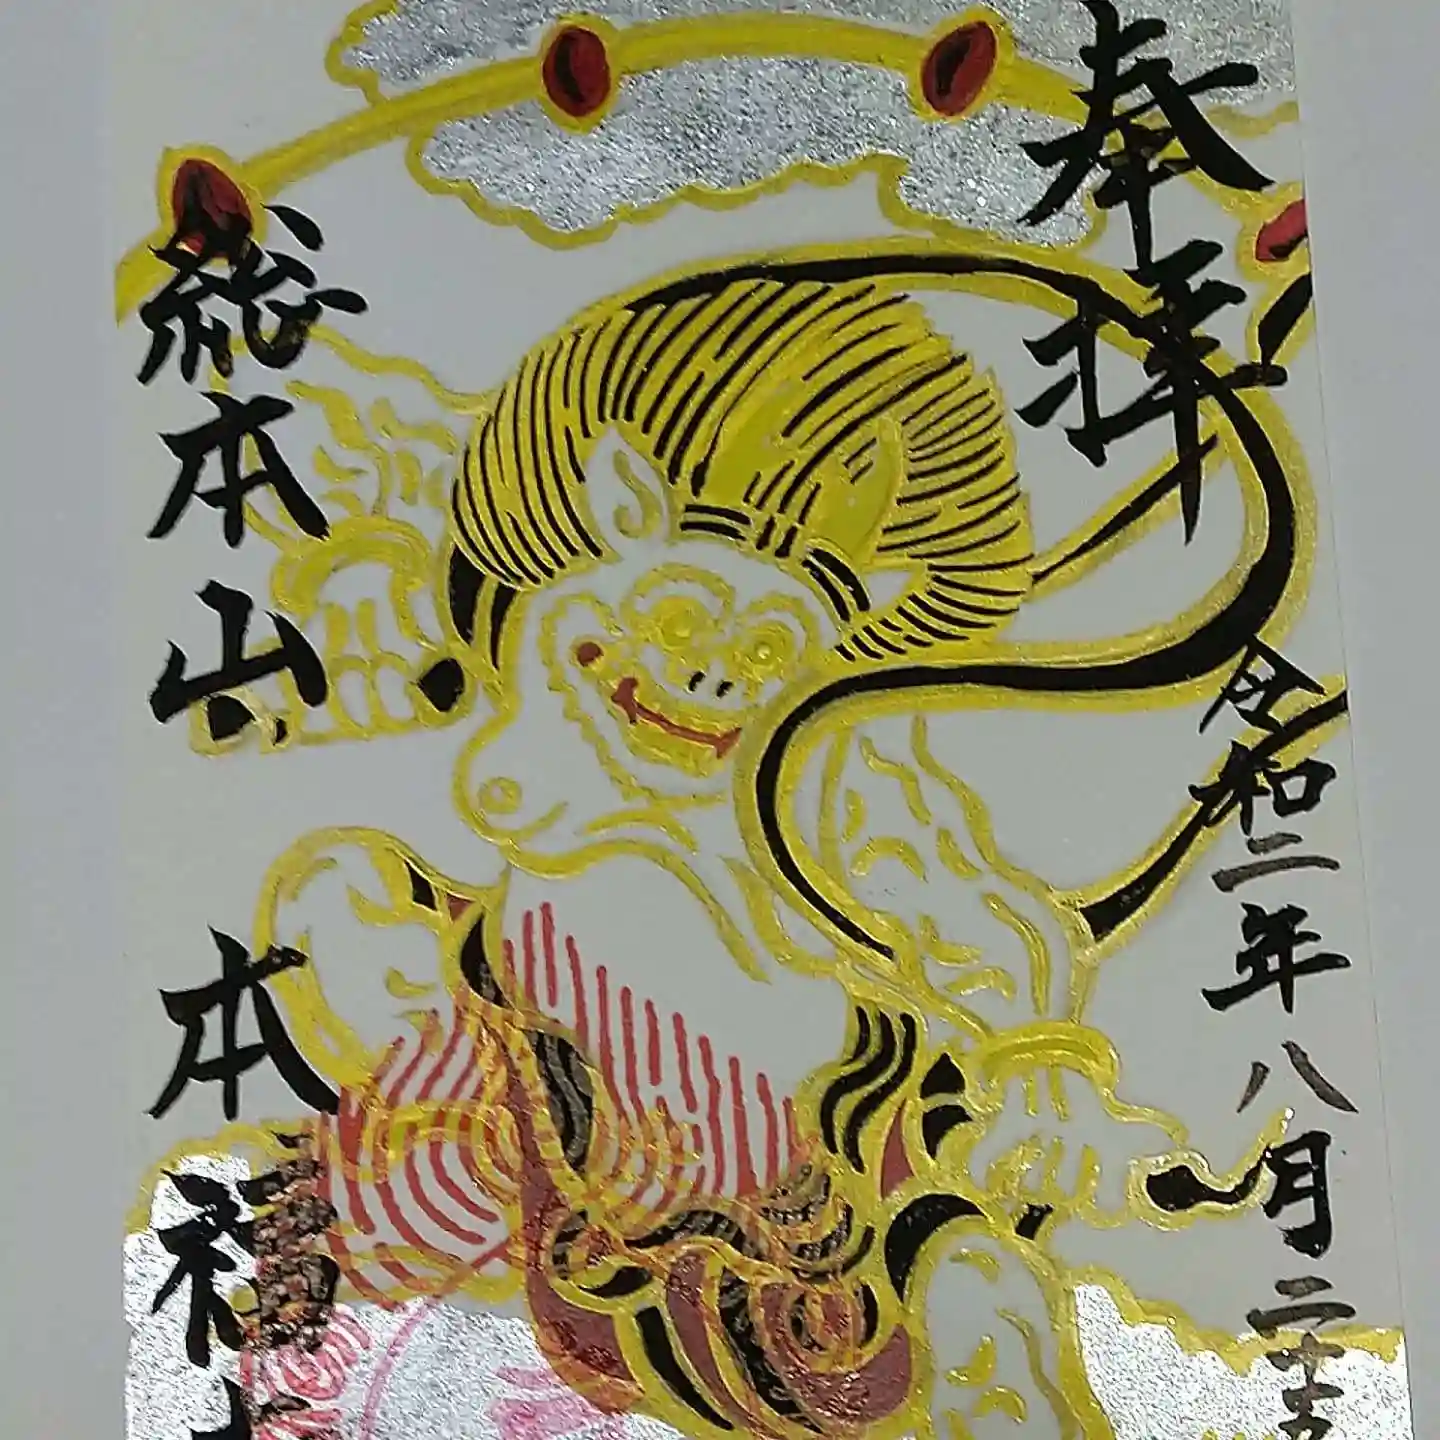 奉拝
令和二年八月二十五
総本山
本福